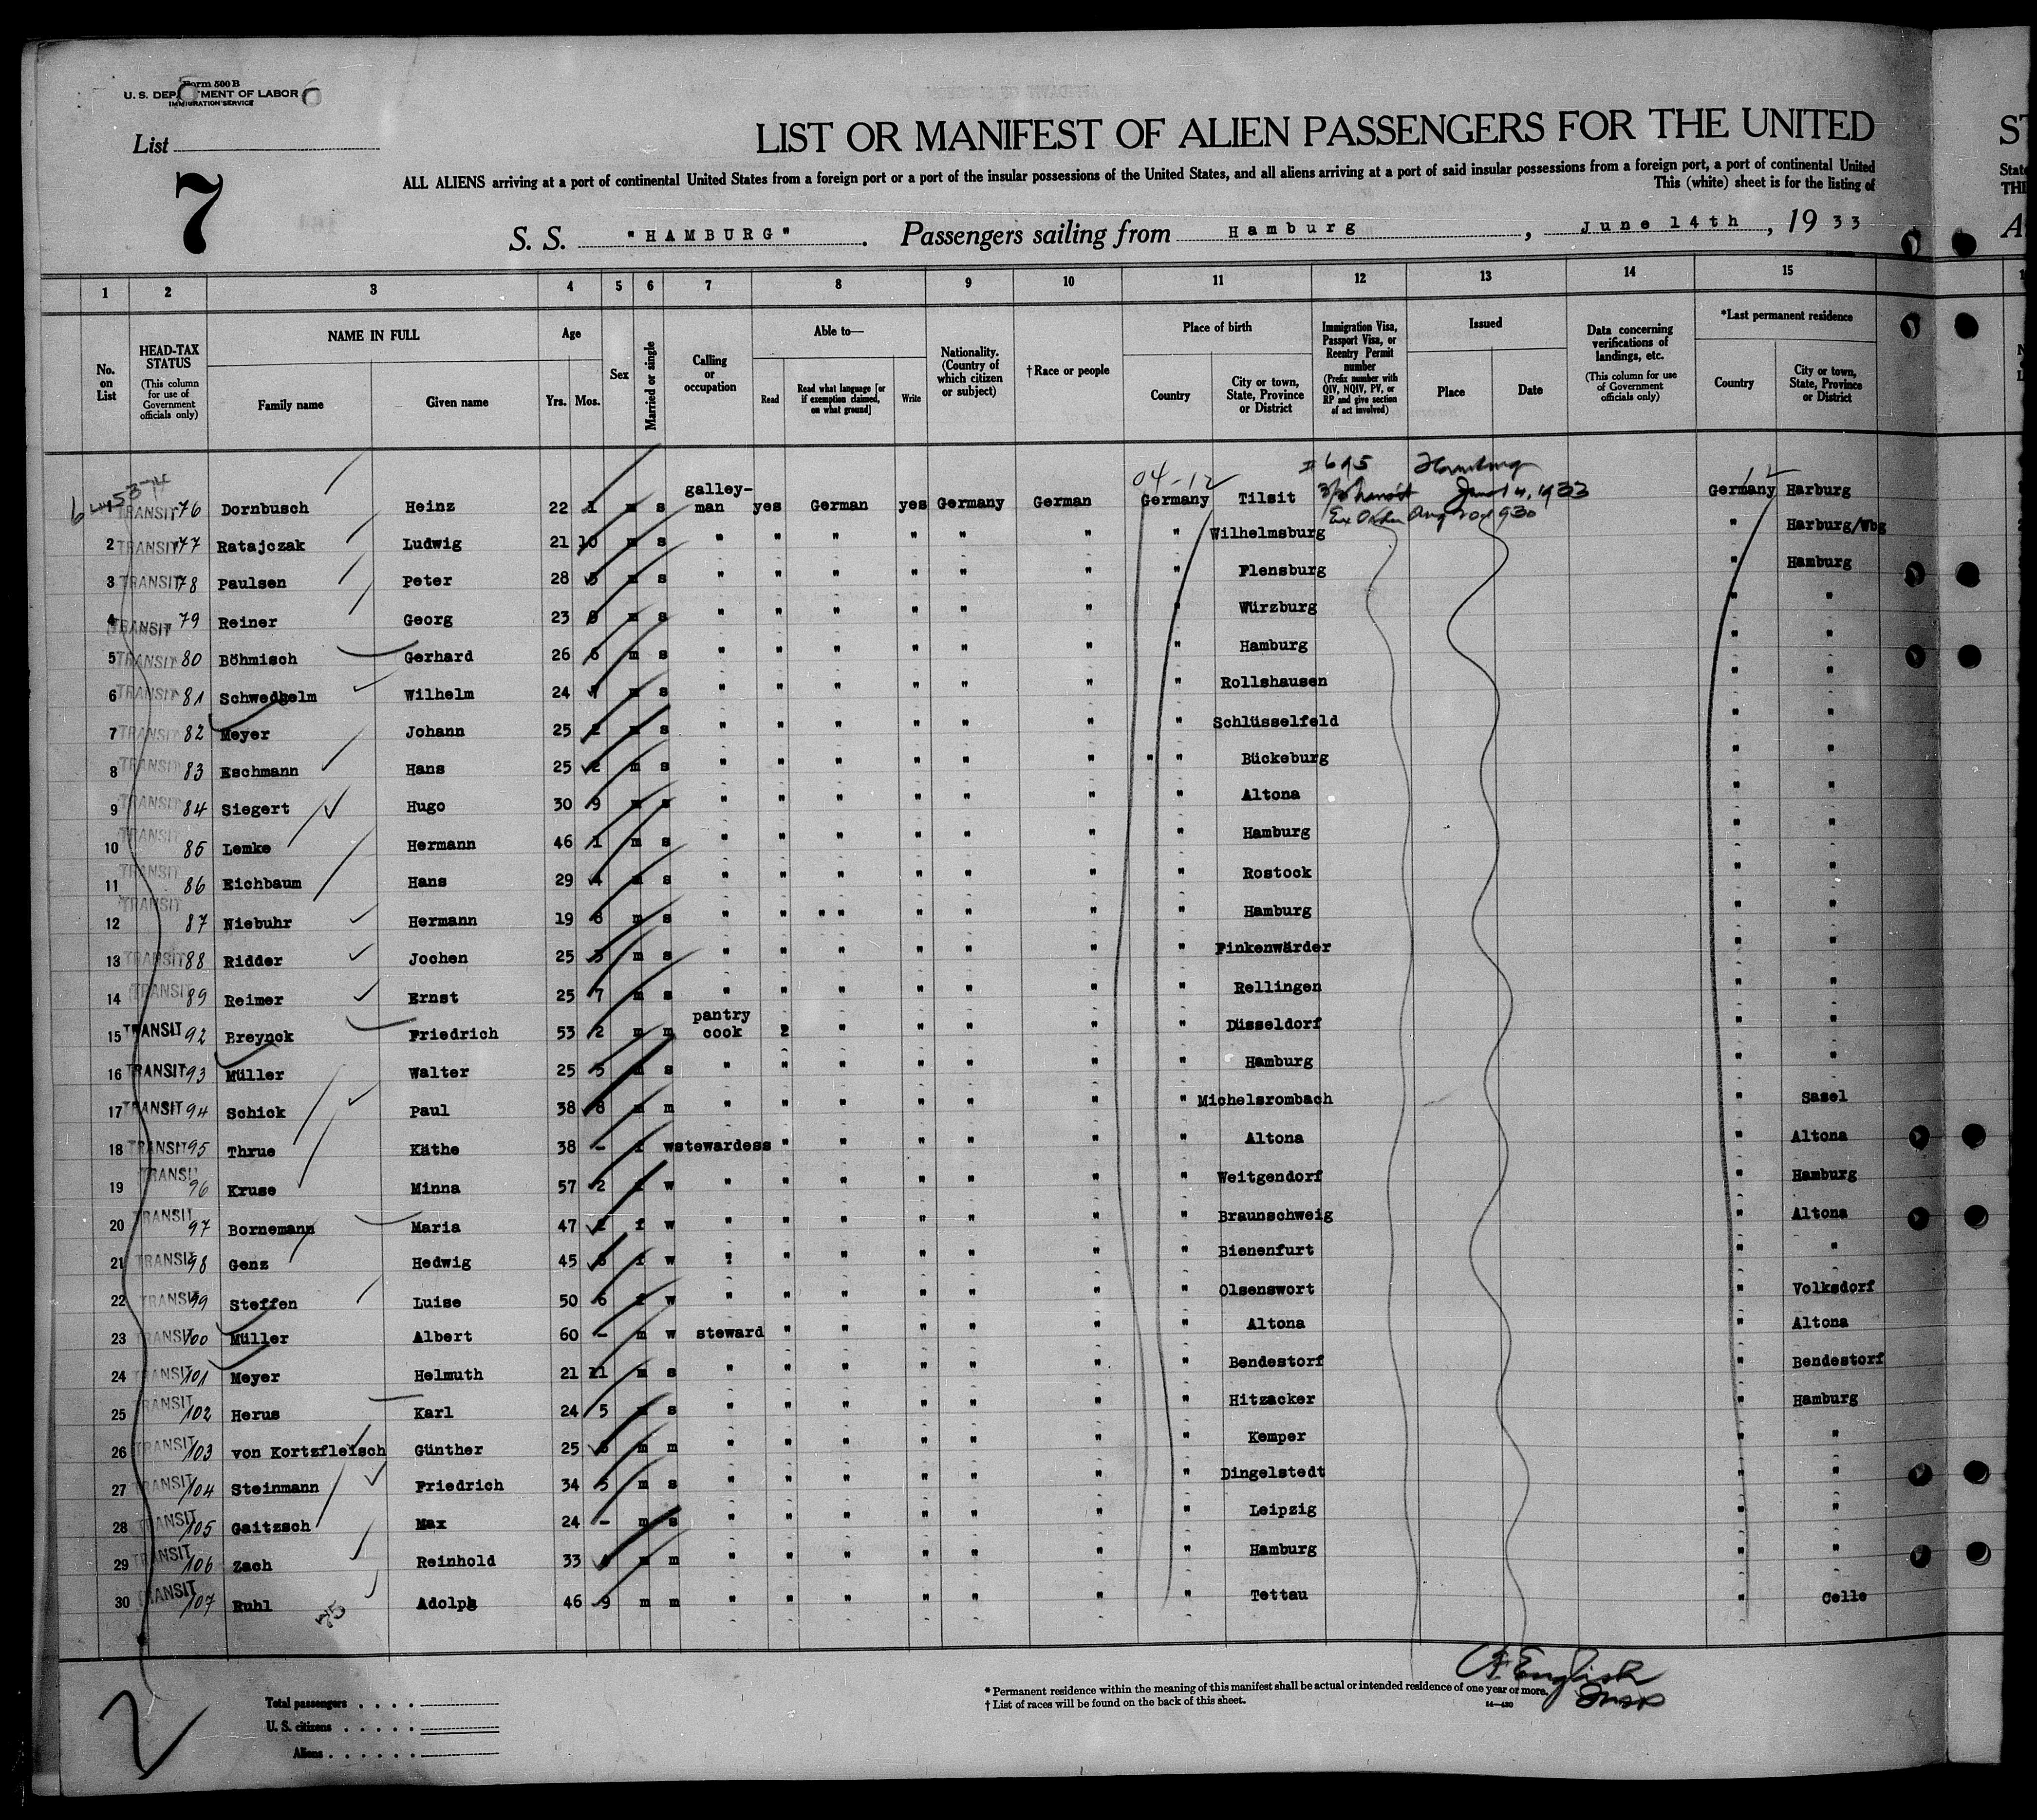 Form 500 B
U. S. DEPARTMENT OF LABOR
IMMIGRATION SERVICE
List
7
LIST OR MANIFEST OF ALIEN PASSENGERS FOR THE UNITED
ALL ALIENS arriving at a port of continental United States from a foreign port or a port of the insular possessions of the United States, and all aliens arriving at a port of said insular possessions from a foreign port, a port of continental United
This (white) sheet is for the listing of
S. S. "HAMBURG". Passengers sailing from Hamburg, June 14th, 19 33
1 2 3 4 5 6 7 8 9 10 11 12 13 14 15
No. on List
HEAD-TAX STATUS (This column for use of Government officials only)
NAME IN FULL
Family name
Given name
Age
Yrs. Mos.
Sex
Married or single
Calling or occupation
Able to—
Read
Read what language [or if exemption claimed, on what ground]
Write
Nationality. (Country of which citizen or subject)
†Race or people
Place of birth
Country
City or town, State, Province or District
Immigration Visa, Passport Visa, or Reentry Permit number (Prefix number with QIV, NQIV, PV, or RP and give section of act involved)
Issued
Place
Date
Data concerning verifications of landings, etc. (This column for use of Government officials only)
*Last permanent residence
Country
City or town, State, Province or District
04-12 #695 Hamburg 12
TRANSIT 76 Dornbusch Heinz 22 1 m s galley-man yes German yes Germany German Germany Tilsit June 14, 1933 Germany Harburg
2 TRANSIT 77 Ratajczak Ludwig 21 10 m s " " " " " " " Wilhelmsburg " Harburg/Wbg
3 TRANSIT 78 Paulsen Peter 28 5 m s " " " " " " " Flensburg " Hamburg
4 TRANSIT 79 Reiner Georg 23 m s " " " " " " " Würzburg " "
5 TRANSIT 80 Böhmisch Gerhard 26 6 m s " " " " " " " Hamburg " "
6 TRANSIT 81 Schwedhelm Wilhelm 24 m s " " " " " " " Rollshausen " "
7 TRANSIT 82 Meyer Johann 25 2 m s " " " " " " " Schlüsselfeld " "
8 TRANSIT 83 Eschmann Hans 25 2 m s " " " " " " " " Bückeburg " "
9 TRANSIT 84 Siegert Hugo 30 9 m s " " " " " " " Altona " "
10 TRANSIT 85 Lemke Hermann 46 1 m s " " " " " " " Hamburg " "
11 TRANSIT 86 Eichbaum Hans 29 4 m s " " " " " " " Rostock " "
12 TRANSIT 87 Niebuhr Hermann 19 8 m s " " " " " " " " Hamburg " "
13 TRANSIT 88 Ridder Jochen 25 3 m s " " " " " " " Finkenwärder " "
14 TRANSIT 89 Reimer Ernst 25 7 m s " " " " " " " Rellingen " "
15 TRANSIT 92 Breynck Friedrich 53 2 m m pantry cook " " " " " " Düsseldorf " "
16 TRANSIT 93 Müller Walter 25 5 m s " " " " " " " Hamburg " "
17 TRANSIT 94 Schick Paul 38 8 m m " " " " " " " Michelsrombach " Sasel
18 TRANSIT 95 Thrue Käthe 38 - f w stewardess " " " " " " Altona " Altona
19 TRANSIT 96 Kruse Minna 57 2 f w " " " " " " " Weitgendorf " Hamburg
20 TRANSIT 97 Bornemann Maria 47 f w " " " " " " " Braunschweig " Altona
21 TRANSIT 98 Genz Hedwig 45 f w " " " " " " " Bienenfurt " "
22 TRANSIT 99 Steffen Luise 50 6 f w " " " " " " " Olsenswort " Volksdorf
23 TRANSIT 100 Müller Albert 60 - m w steward " " " " " " Altona " Altona
24 TRANSIT 101 Meyer Helmuth 21 11 m s " " " " " " " Bendestorf " Bendestorf
25 TRANSIT 102 Herus Karl 24 5 m s " " " " " " " Hitzacker " Hamburg
26 TRANSIT 103 von Kortzfleisch Günther 25 m m " " " " " " " Kemper " "
27 TRANSIT 104 Steinmann Friedrich 34 5 m s " " " " " " " Dingelstedt " "
28 TRANSIT 105 Gaitzsch Max 24 - m s " " " " " " " Leipzig " "
29 TRANSIT 106 Zach Reinhold 33 m m " " " " " " " Hamburg " "
30 TRANSIT 107 Ruhl Adolph 46 9 m m " " " " " " " Tettau " Celle
Total passengers
U. S. citizens
Aliens
* Permanent residence within the meaning of this manifest shall be actual or intended residence of one year or more.
† List of races will be found on the back of this sheet.
14—430
English
Insp